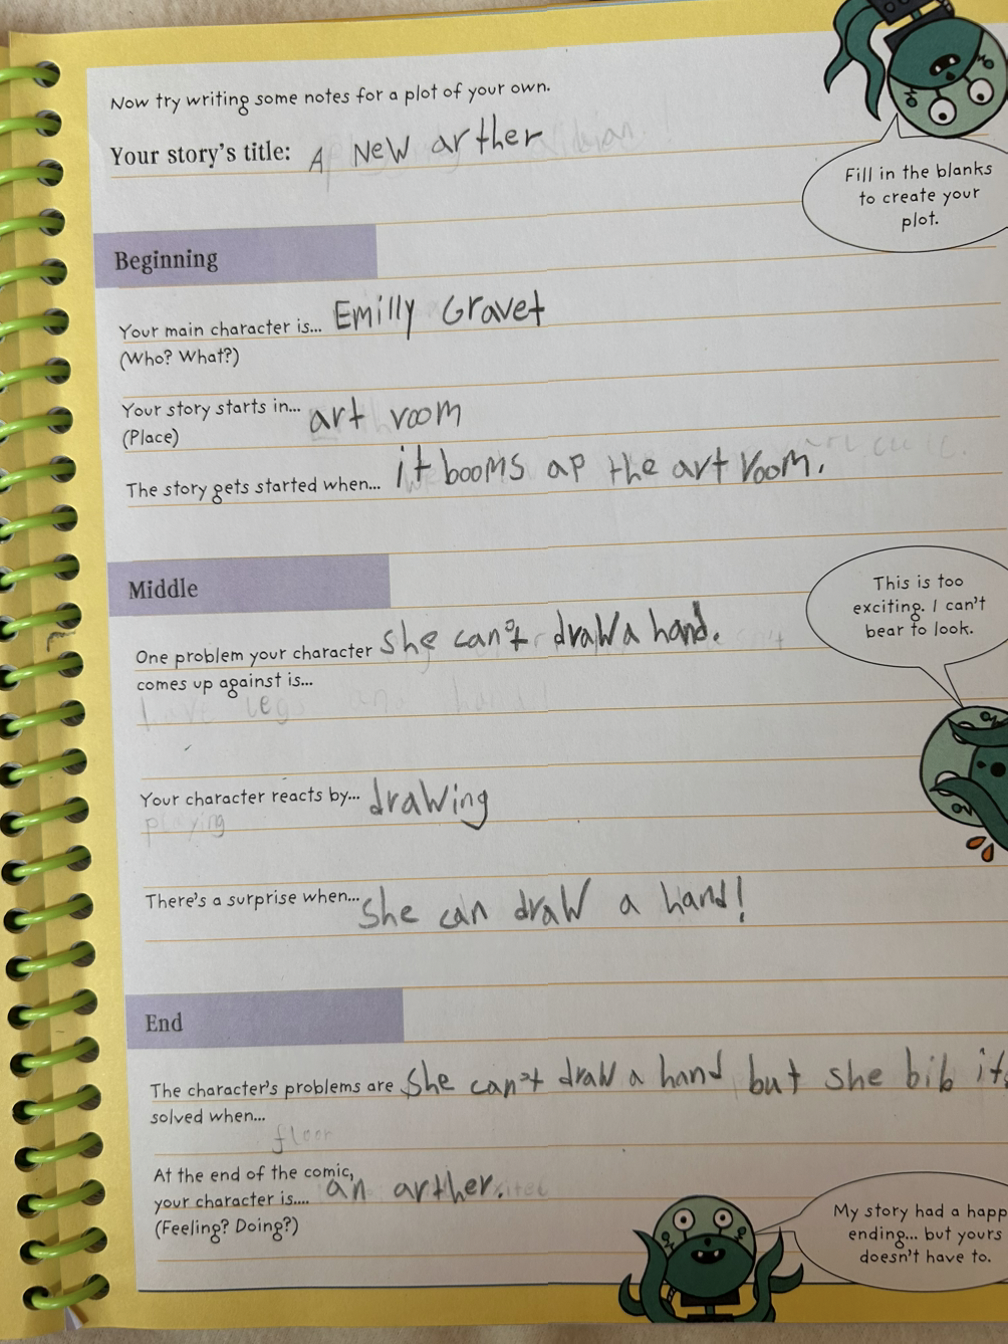 Now try writing some notes for a plot of your own.
Your story's title: A New arther
Fill in the blanks
to create your
plot.
Beginning
Your main character is... Emilly Gravet
(Who? What?)
Your story starts in... art room
(Place)
The story gets started when... it booms ap the art room.
Middle
This is too
exciting. I can't
bear to look.
One problem your character she can't draw a hand.
comes up against is...
Your character reacts by... drawing
playing
There's a surprise when... she can draw a hand!
End
The character's problems are she can't draw a hand but she bib it.
solved when...
floor
At the end of the comic,
your character is.... an arther.
(Feeling? Doing?)
My story had a happ
ending... but yours
doesn't have to.